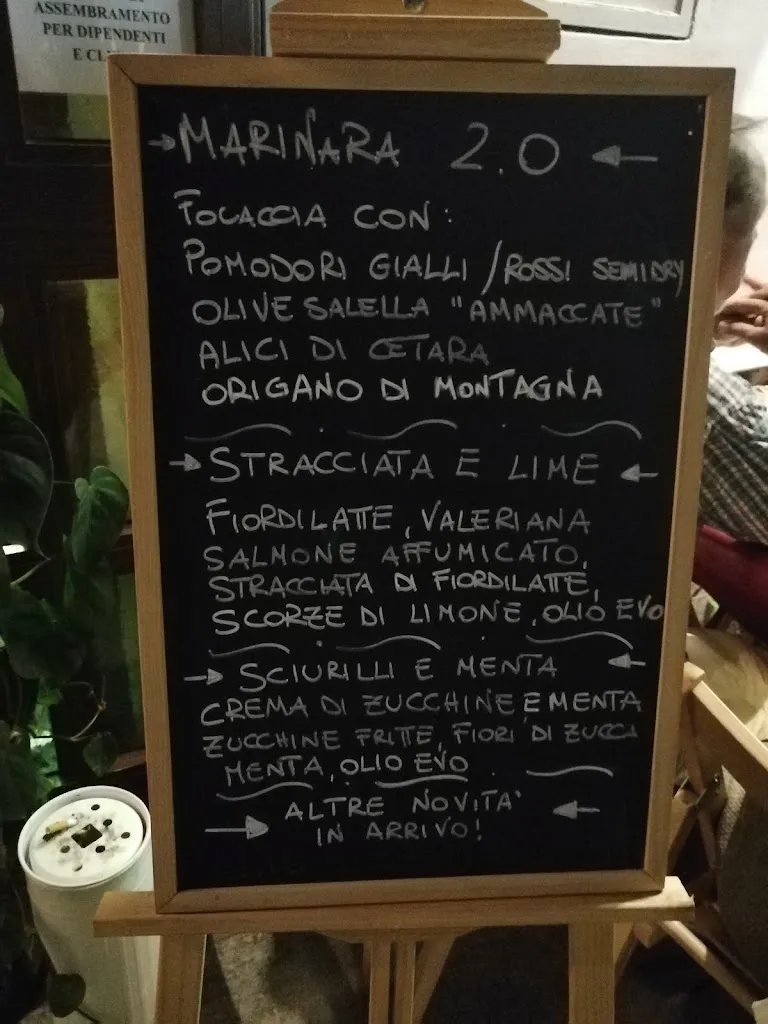 ASSEMBRAMENTO
PER DIPENDENTI
E
→ MARINARA 2.0 ←
FOCACCIA CON:
POMODORI GIALLI / ROSSI SEMIDRY
OLIVE SALELLA "AMMACCATE"
ALICI DI CETARA
ORIGANO DI MONTAGNA
→ STRACCIATA E LIME ←
FIORDILATTE, VALERIANA
SALMONE AFFUMICATO,
STRACCIATA DI FIORDILATTE,
SCORZE DI LIMONE, OLIO EVO
→ SCIURILLI E MENTA ←
CREMA DI ZUCCHINE E MENTA
ZUCCHINE FRITTE, FIORI DI ZUCCA
MENTA, OLIO EVO
→ ALTRE NOVITA' ←
IN ARRIVO!